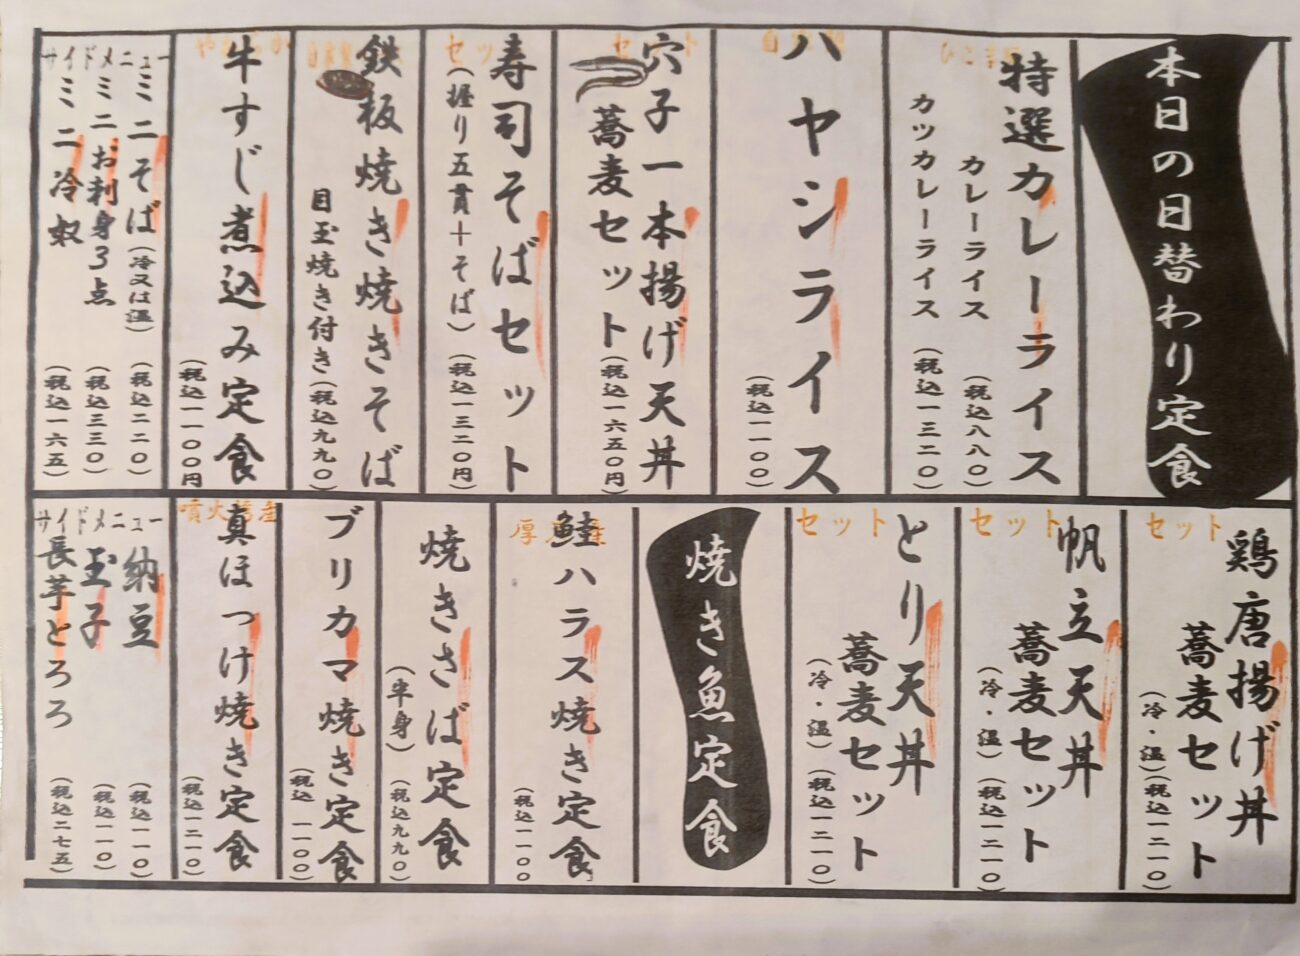 本日の日替わり定食
特選カレーライス
カレーライス (税込八八〇)
カツカレーライス (税込一三二〇)
ハヤシライス
(税込一一〇〇)
セット
穴子一本揚げ天丼
蕎麦セット(税込一六五〇円)
セット
寿司そばセット
(握り五貫+そば) (税込一三二〇円)
鉄板焼き焼きそば
目玉焼き付き(税込九九〇)
牛すじ煮込み定食
(税込一一〇〇円
サイドメニュー
ミニそば(冷又は温) (税込二二〇)
ミニお刺身3点 (税込三三〇)
ミニ冷奴 (税込一六五)
鶏唐揚げ丼
セット
蕎麦セット
(冷・温)(税込一二一〇)
帆立天丼
セット
蕎麦セット
(冷・温)(税込一二一〇)
とり天丼
セット
蕎麦セット
(冷・温)(税込一二一〇)
焼き魚定食
鮭ハラス焼き定食
(税込一一〇〇
焼きさば定食
(半身) (税込九九〇)
ブリカマ焼き定食
(税込 一一〇〇)
噴火湾産
真ほっけ焼き定食
(税込一二一〇)
サイドメニュー
納豆 (税込一一〇)
玉子 (税込一一〇)
長芋とろろ (税込二七五)